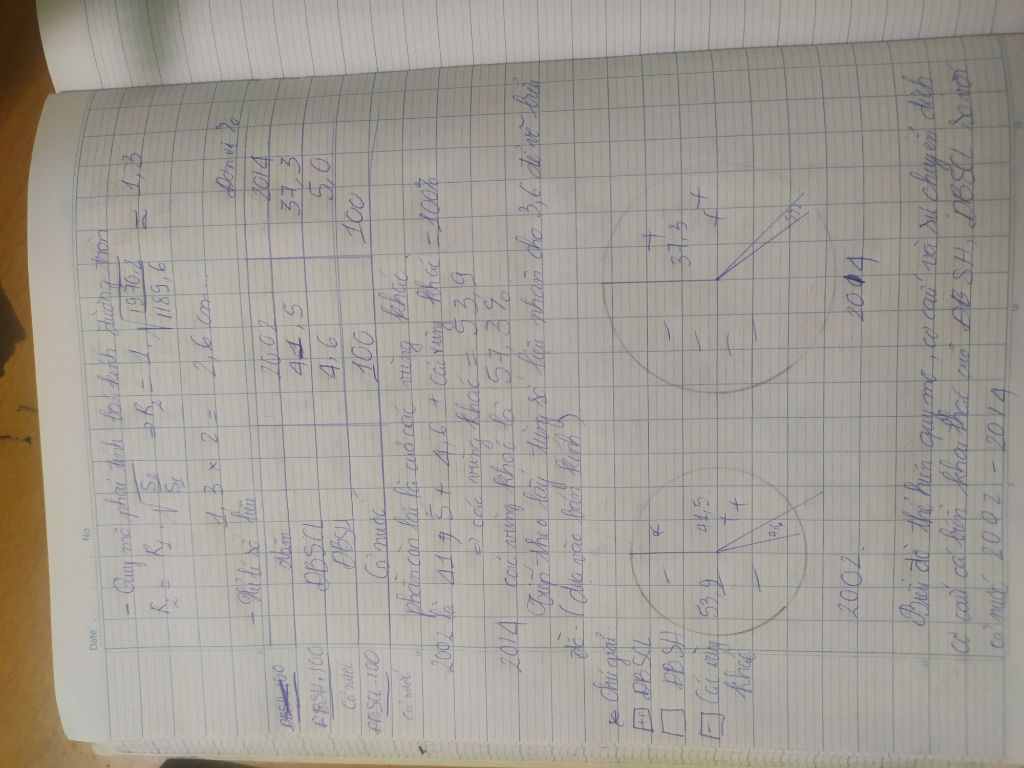 Date No
- Quy mô phải tính bán kính đường tròn
R2 = R1 . √S2/S1 ⇒ R2 = 1. √1970,1/1189,6 = 1,3
1,3 x 2 = 2,6 cm...
- Xử lí số liệu Đơn vị %
Năm 2002 2014
ĐBSCL 41,5 37,3
ĐBSH 4,6 5,0
Cả nước 100 100
ĐBSH.100
Cả nước
ĐBSCL.100
cả nước
phần còn lại là của các vùng khác
2002 là 41,5 + 4,6 + các vùng khác = 100%
⇒ các vùng khác = 53,9
2014 các vùng khác là 57,3%
Tiếp theo lấy từng số liệu nhân cho 3,6 để vẽ biểu
đồ. (dựa vào bán kính)
* Chú giải
+ ĐBSCL
ĐBSH
- Các vùng khác
53,9 41,5 4,6
37,3 5%
2002 2014
Biểu đồ thể hiện quy mô, cơ cấu và sự chuyển dịch
cơ cấu của ĐBSH, ĐBSCL so với
cả nước 2002 - 2014